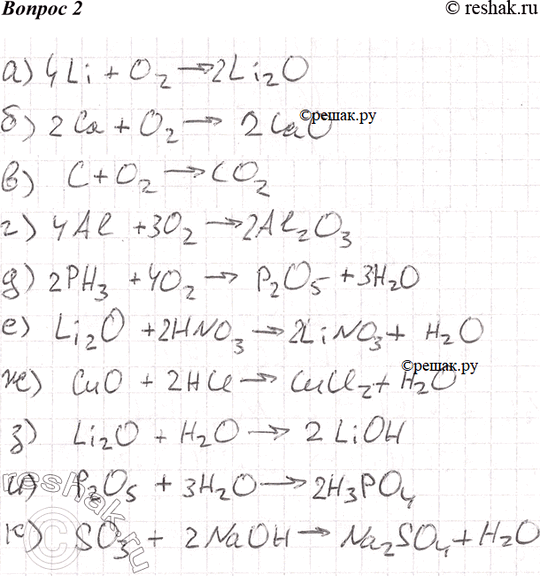 Вопрос 2
© reshak.ru
а) 4Li + O₂ → 2Li₂O
©решак.ру
б) 2Ca + O₂ → 2CaO
в) C + O₂ → CO₂
г) 4Al + 3O₂ → 2Al₂O₃
д) 2PH₃ + 4O₂ → P₂O₅ + 3H₂O
е) Li₂O + 2HNO₃ → 2LiNO₃ + H₂O
©решак.ру
ж) CuO + 2HCl → CuCl₂ + H₂O
з) Li₂O + H₂O → 2LiOH
и) P₂O₅ + 3H₂O → 2H₃PO₄
к) SO₃ + 2NaOH → Na₂SO₄ + H₂O
reshak.ru